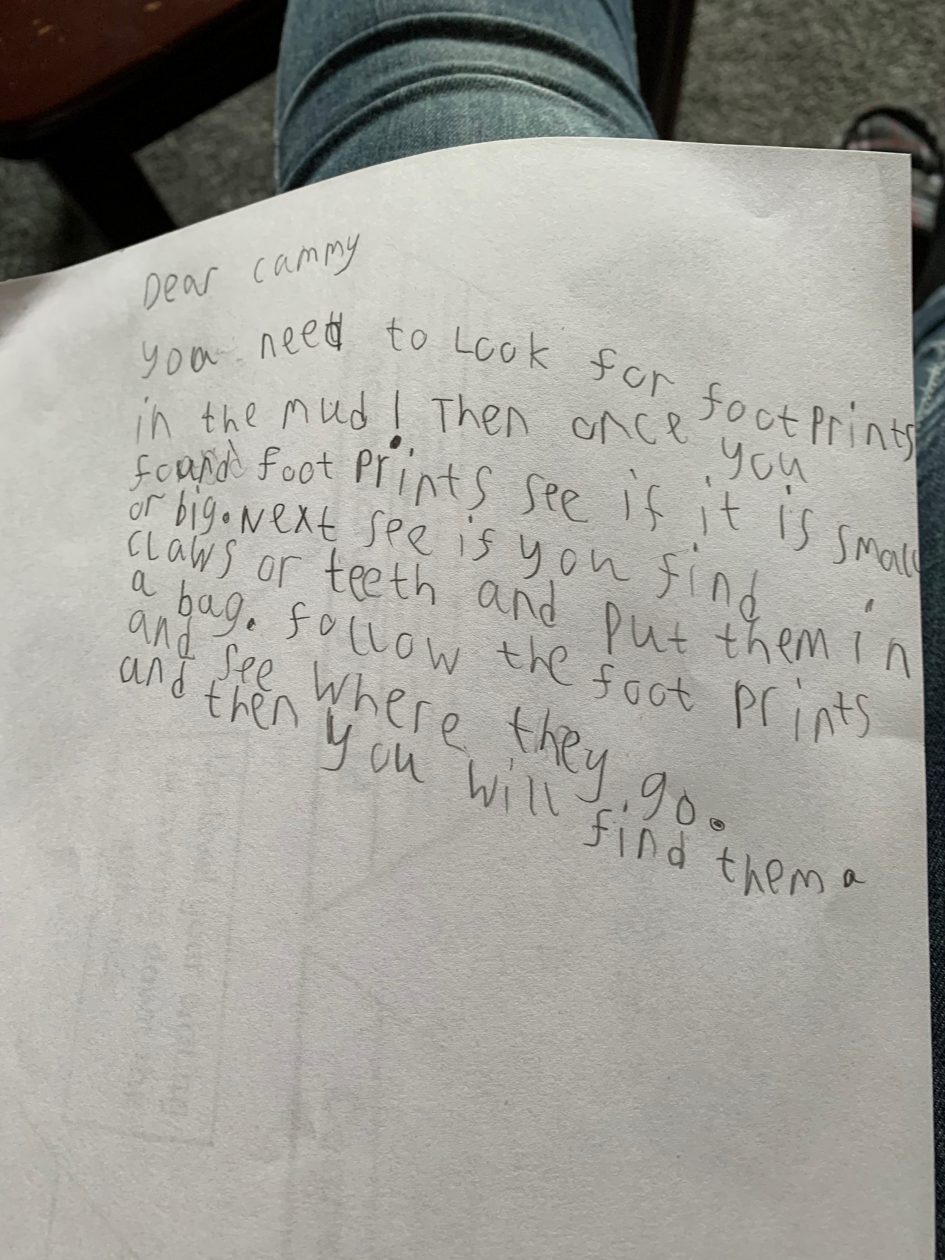 Dear cammy
you need to Look for foot prints
in the mud! Then once you
found foot prints see if it is small
or big. Next see if you find
claws or teeth and put them in
a bag. follow the foot prints
and see where they go.
and then you will find them